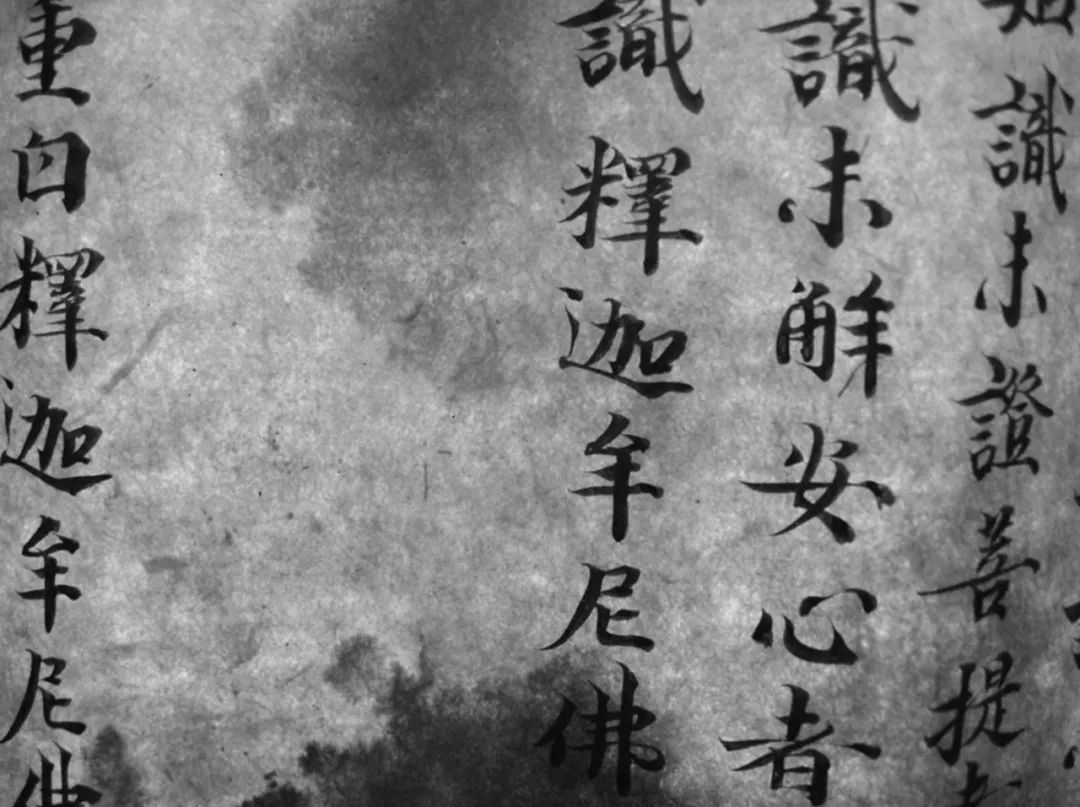 識未證菩提
識未解安心者
識釋迦牟尼佛
重白釋迦牟尼佛